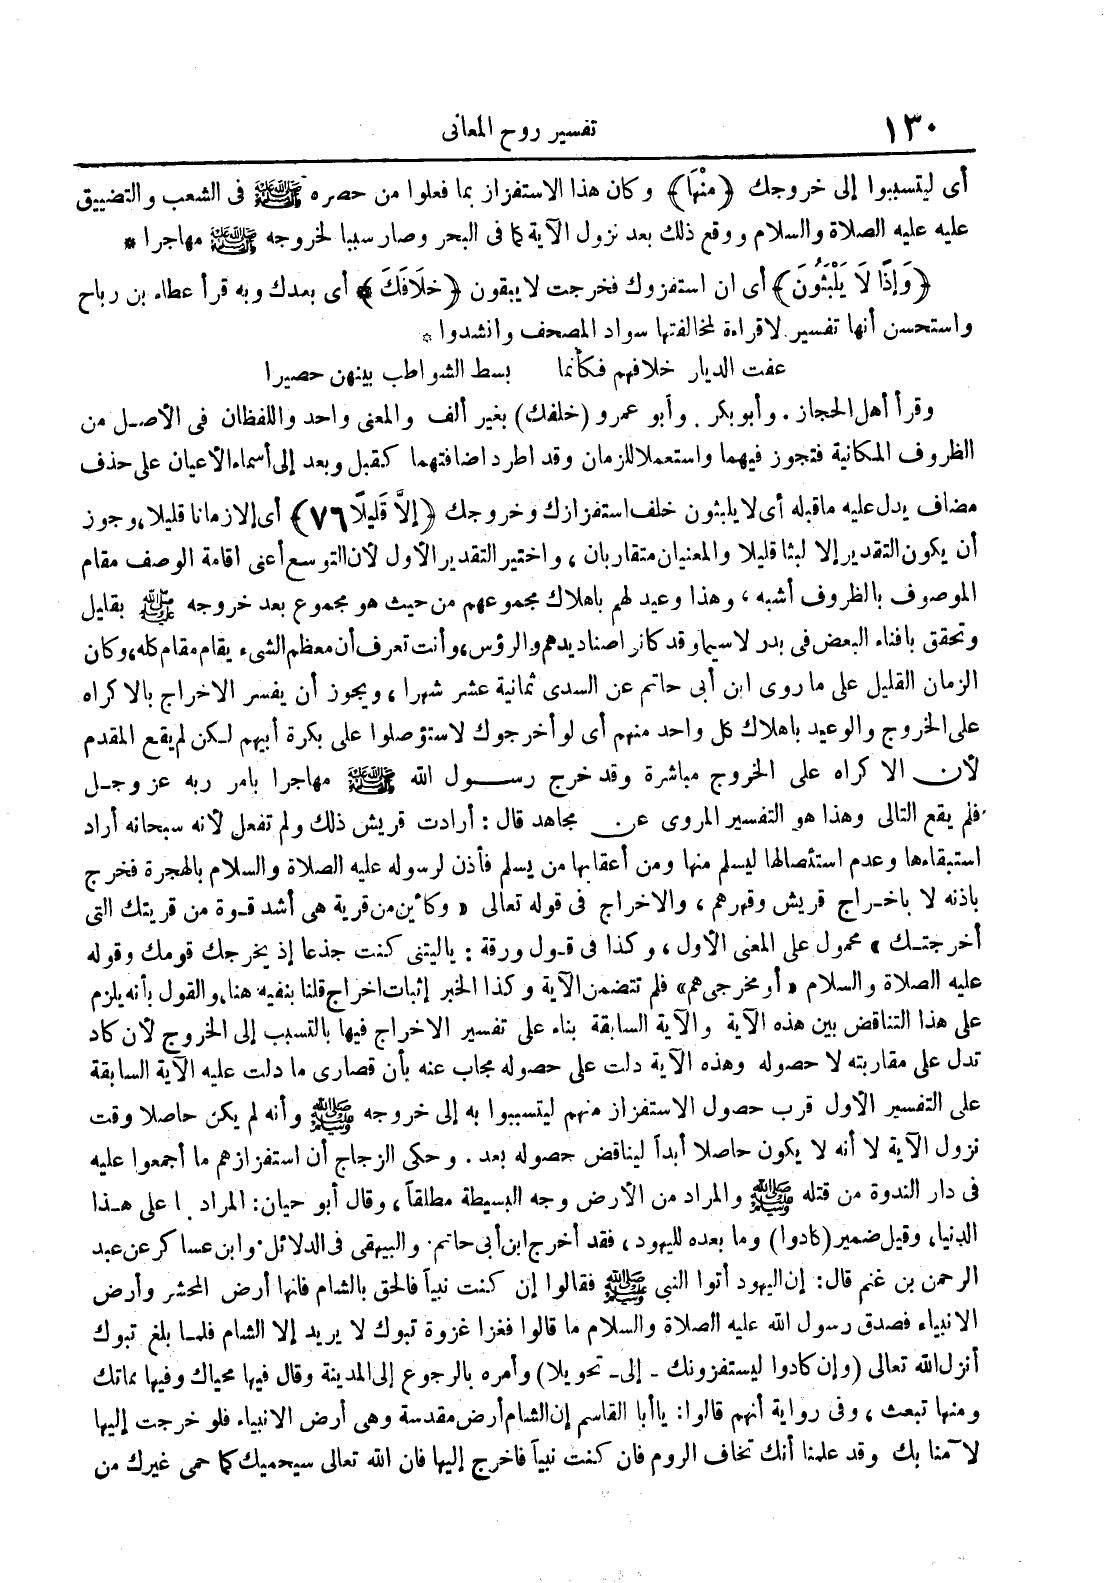 ١٣٠ تفسير روح المعانى
أى ليتسببوا إلى خروجك ﴿ مِنْهَا ﴾ وكان هذا الاستفزاز بما فعلوا من حصره ﷺ فى الشعب والتضييق
عليه عليه الصلاة والسلام ووقع ذلك بعد نزول الآية كما فى البحر وصار سببا لخروجه ﷺ مهاجرا *
﴿ وَإِذًا لَا يَلْبَثُونَ ﴾ أى ان استفزوك فخرجت لا يبقون ﴿ خلَافَكَ ﴾ أى بعدك وبه قرأ عطاء بن رباح
واستحسن أنها تفسير لا قراءة لمخالفتها سواد المصحف وانشدوا *
عفت الديار خلافهم فكأنما بسط الشواطب بينهن حصيرا
وقرأ أهل الحجاز . وأبو بكر . وأبو عمرو (خلفك) بغير ألف والمعنى واحد واللفظان فى الأصل من
الظروف المكانية فتجوز فيهما واستعملا للزمان وقد اطرد اضافتهما كقبل وبعد إلى أسماء الأعيان على حذف
مضاف يدل عليه ما قبله أى لا يلبثون خلف استفزازك وخروجك ﴿ إلاَّ قَليلًا ٧٦ ﴾ أى إلا زمانا قليلا، وجوز
أن يكون التقدير إلا لبثا قليلا والمعنيان متقاربان ، واختير التقدير الأول لأن التوسع أعنى اقامة الوصف مقام
الموصوف بالظروف أشبه ، وهذا وعيد لهم باهلاك مجموعهم من حيث هو مجموع بعد خروجه ﷺ بقليل
وتحقق بافناء البعض فى بدر لاسيما وقد كانوا صناديدهم والرؤس، وأنت تعرف أن معظم الشىء يقام مقام كله، وكان
الزمان القليل على ما روى ابن أبى حاتم عن السدى ثمانية عشر شهرا ، ويجوز أن يفسر الاخراج بالاكراه
على الخروج والوعيد باهلاك كل واحد منهم أى لو أخرجوك لاستؤصلوا على بكرة أبيهم لكن لم يقع المقدم
لأن الاكراه على الخروج مباشرة وقد خرج رسول الله ﷺ مهاجرا بامر ربه عز وجل
فلم يقع التالى وهذا هو التفسير المروى عن مجاهد قال : أرادت قريش ذلك ولم تفعل لأنه سبحانه أراد
استبقاءها وعدم استئصالها ليسلم منها ومن أعقابها من يسلم فأذن لرسوله عليه الصلاة والسلام بالهجرة فخرج
باذنه لا باخراج قريش وقهرهم ، والاخراج فى قوله تعالى « وكأين من قرية هى أشد قوة من قريتك التى
أخرجتك » محمول على المعنى الأول ، وكذا فى قول ورقة : ياليتنى كنت جذعا إذ يخرجك قومك وقوله
عليه الصلاة والسلام « أو مخرجى هم » فلم تتضمن الآية وكذا الخبر إثبات اخراج قلنا بنفيه هنا، والقول بأنه يلزم
على هذا التناقض بين هذه الآية والآية السابقة بناء على تفسير الاخراج فيها بالتسبب إلى الخروج لأن كاد
تدل على مقاربته لا حصوله وهذه الآية دلت على حصوله مجاب عنه بأن قصارى ما دلت عليه الآية السابقة
على التفسير الأول قرب حصول الاستفزاز منهم ليتسببوا به إلى خروجه ﷺ وأنه لم يكن حاصلا وقت
نزول الآية لا أنه لا يكون حاصلا أبداً ليناقض حصوله بعد . وحكى الزجاج أن استفزازهم ما أجمعوا عليه
فى دار الندوة من قتله ﷺ والمراد من الأرض وجه البسيطة مطلقاً ، وقال أبو حيان: المراد بها على هذا
الدنيا، وقيل ضمير (كادوا) وما بعده لليهود ، فقد أخرج ابن أبى حاتم . والبيهقى فى الدلائل . وابن عساكر عن عبد
الرحمن بن غنم قال: إن اليهود أتوا النبى ﷺ فقالوا إن كنت نبياً فالحق بالشام فانها أرض المحشر وأرض
الانبياء فصدق رسول الله عليه الصلاة والسلام ما قالوا فغزا غزوة تبوك لا يريد إلا الشام فلما بلغ تبوك
أنزل الله تعالى (وإن كادوا ليستفزونك - إلى - تحويلا) وأمره بالرجوع إلى المدينة وقال فيها محياك وفيها مماتك
ومنها تبعث ، وفى رواية أنهم قالوا: يا أبا القاسم إن الشام أرض مقدسة وهى أرض الانبياء فلو خرجت إليها
لآمنا بك وقد علمنا أنك تخاف الروم فان كنت نبياً فاخرج إليها فان الله تعالى سيحميك كما حمى غيرك من